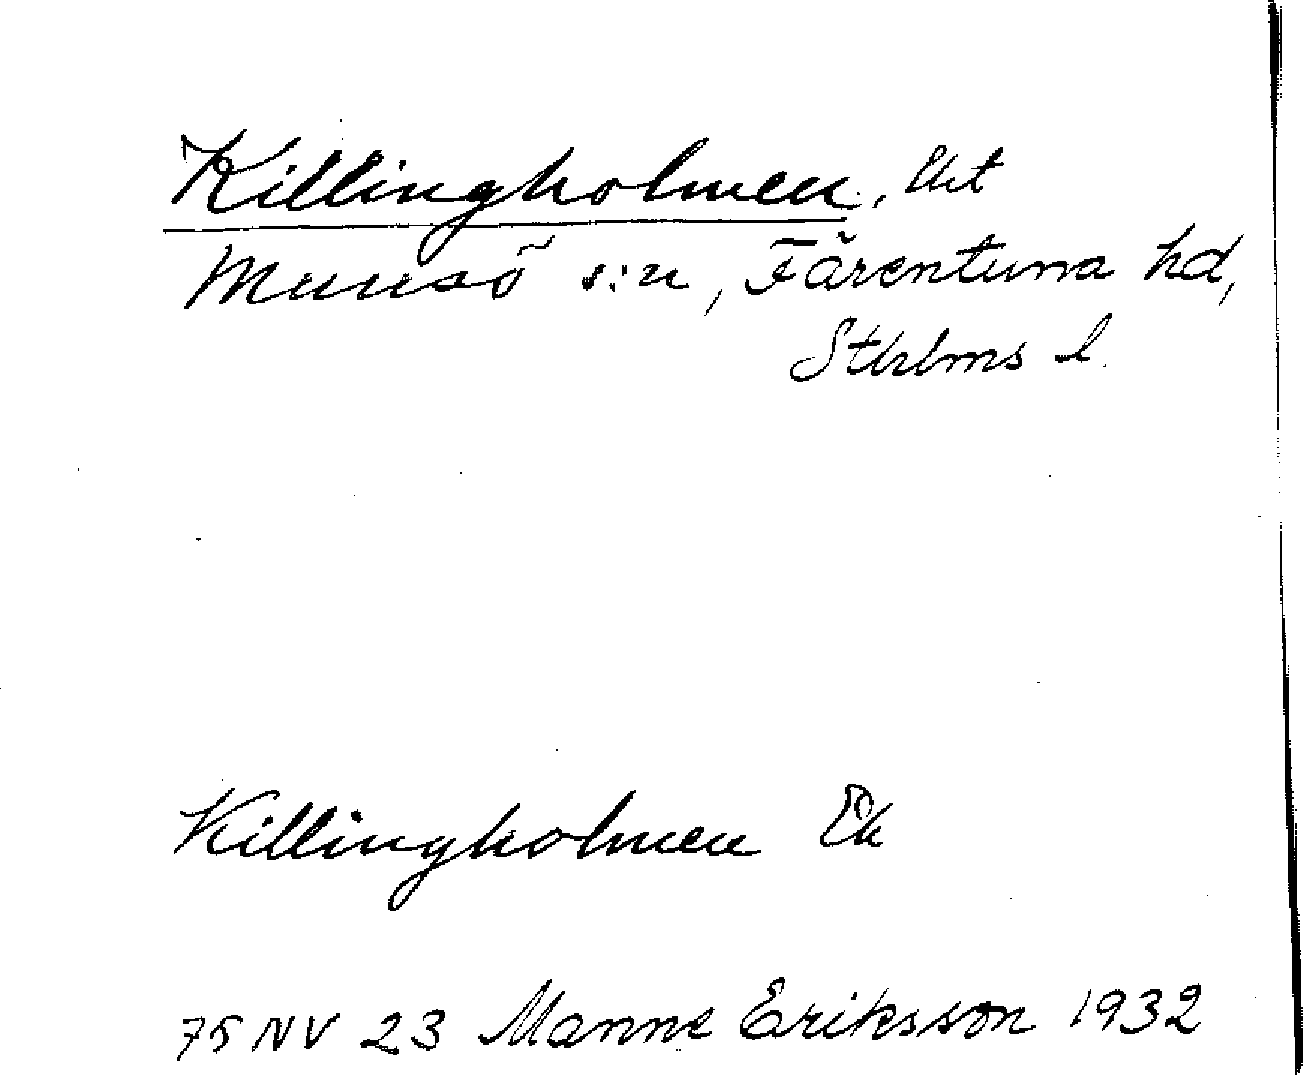 Killingholmen, Ekt
Munsö s:n, Färentuna hd,
Sthlms l.
Killingholmen Ek
75 NV 23 Manne Eriksson 1932